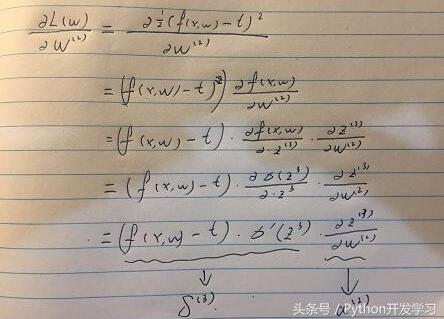 ∂L(w)/∂W⁽²⁾ = ∂½(f(x,w)-t)²/∂W⁽²⁾
= (f(x,w)-t) ∂f(x,w)/∂W⁽²⁾
= (f(x,w)-t) · ∂f(x,w)/∂·z⁽³⁾ · ∂z⁽³⁾/∂w⁽²⁾
= (f(x,w)-t) · ∂σ(z³)/∂·z³ · ∂z⁽³⁾/∂w²⁾
= (f(x,w)-t) · σ'(z³) · ∂z⁽³⁾/∂w⁽²⁾
↓ ↓
δ⁽³⁾ a⁽²⁾
头条号 / Python开发学习